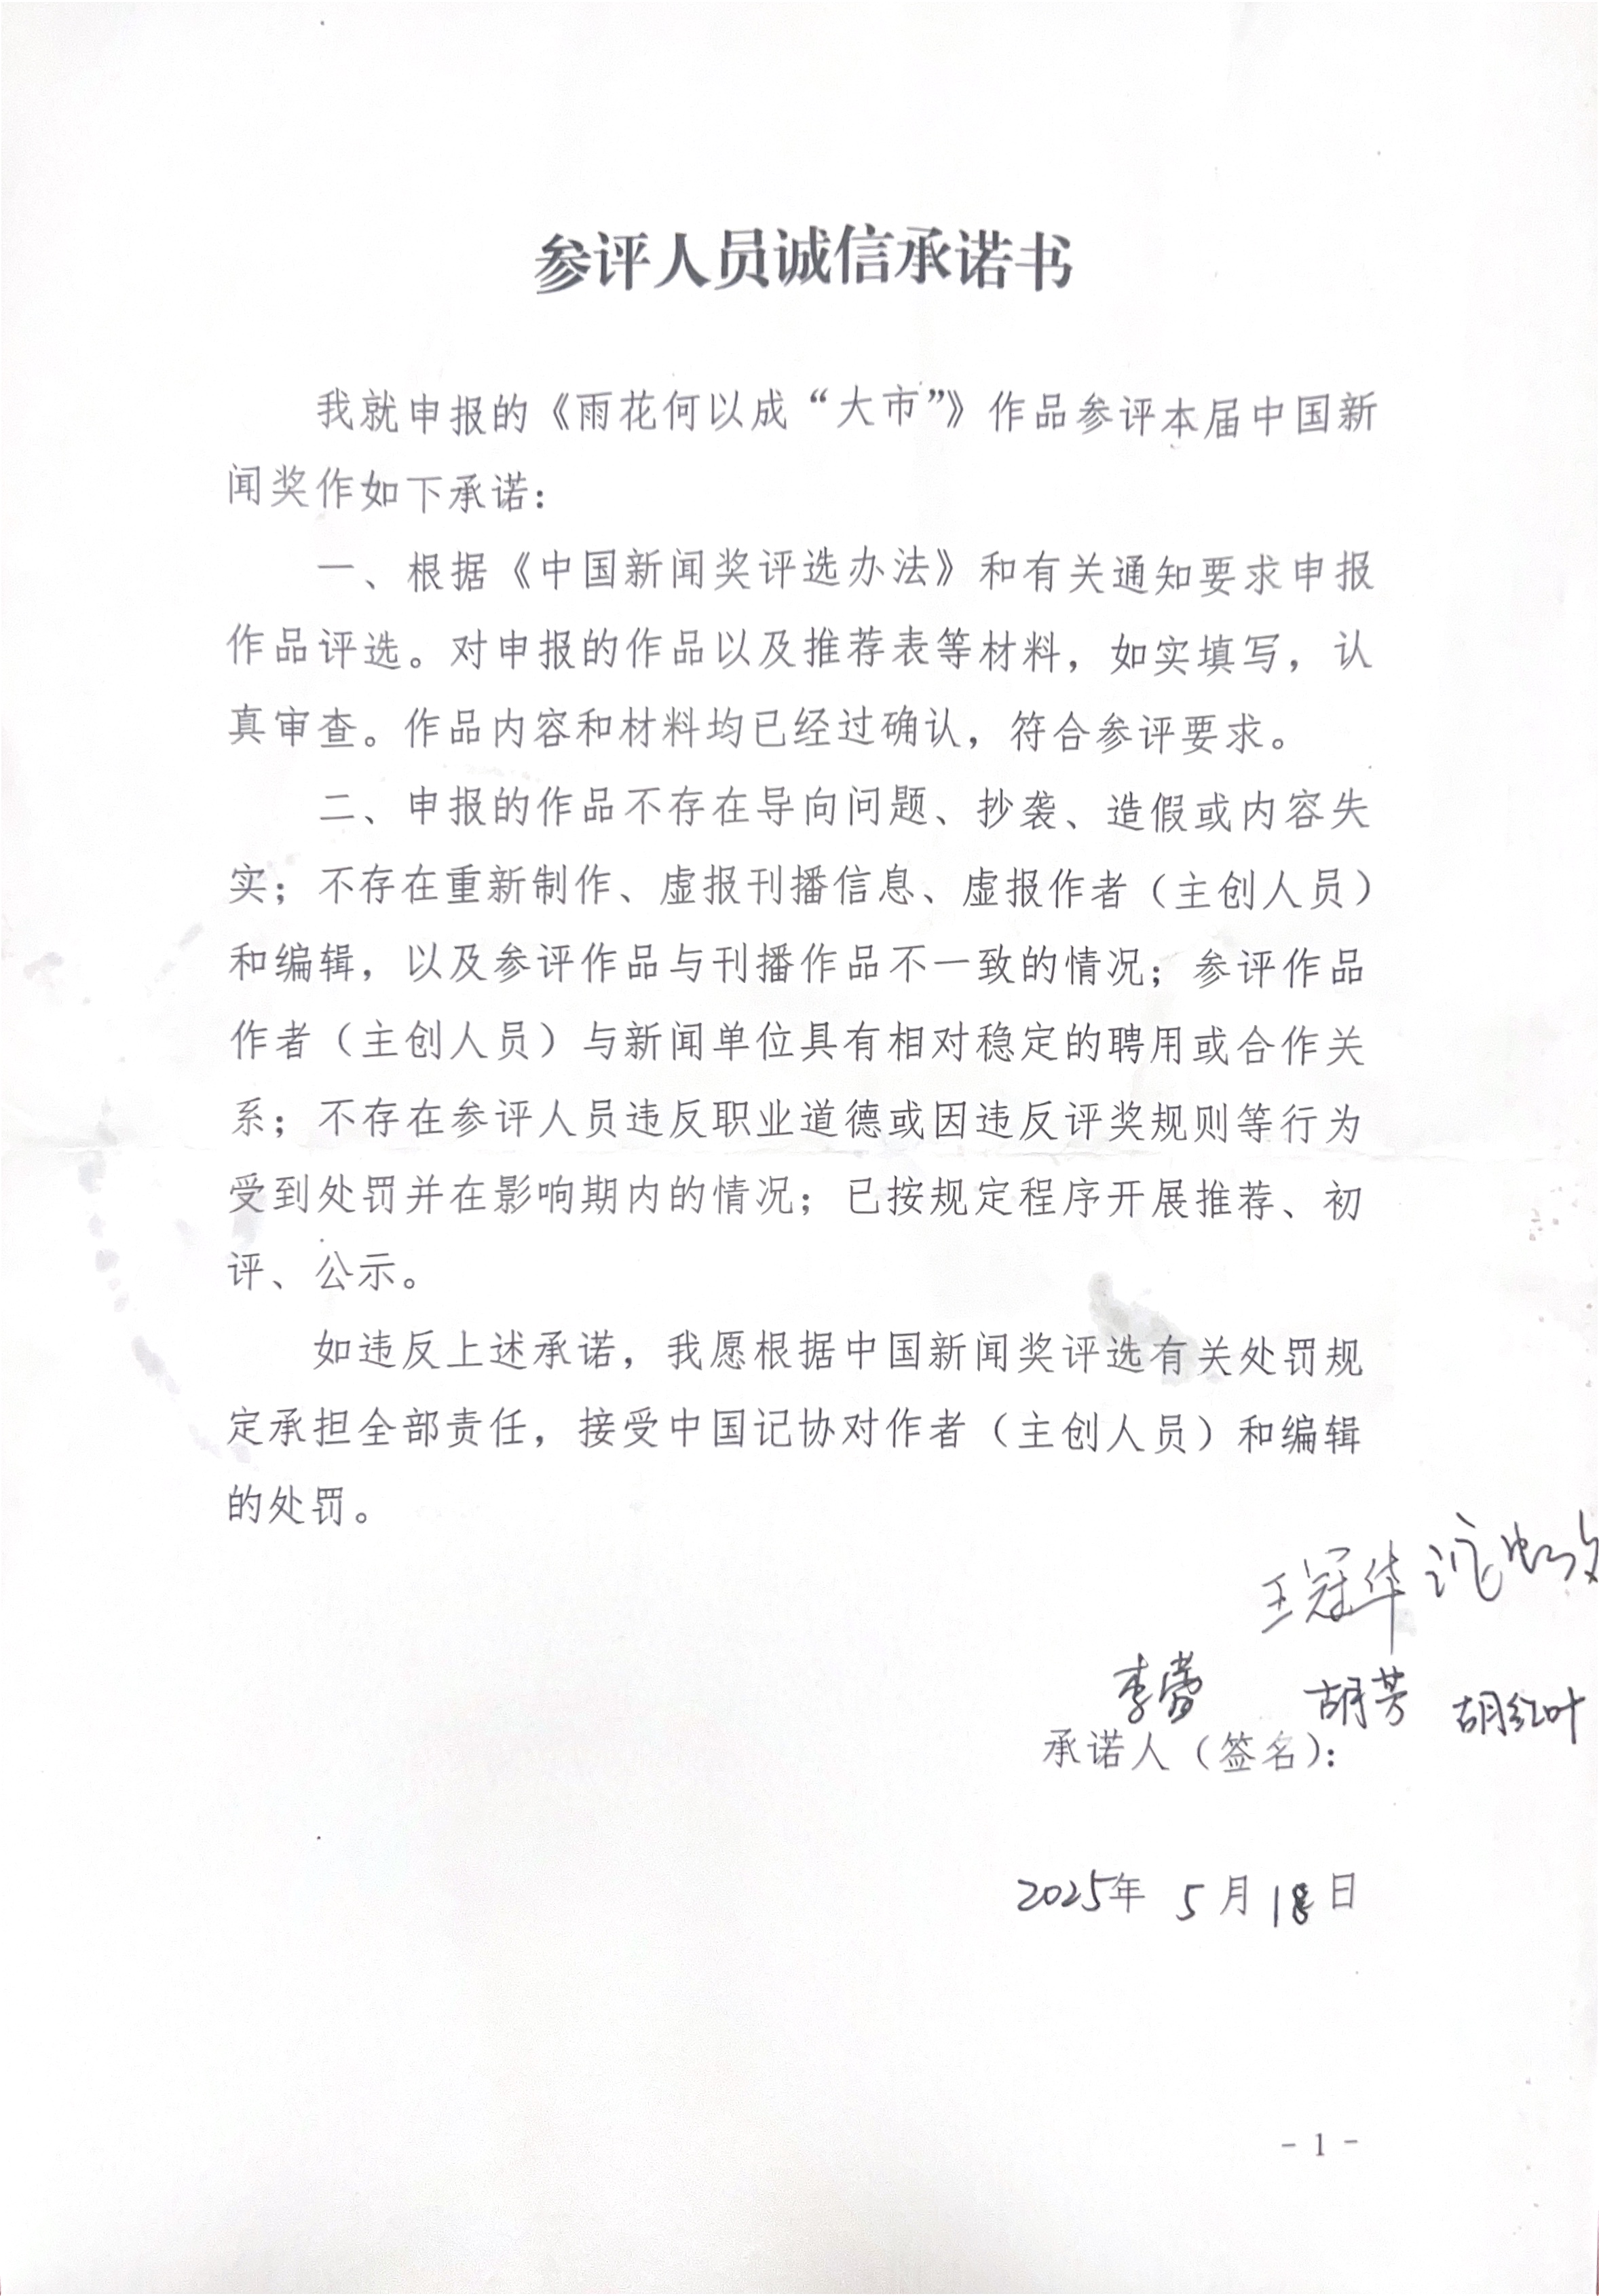 参评人员诚信承诺书
我就申报的《雨花何以成“大市”》作品参评本届中国新
闻奖作如下承诺：
一、根据《中国新闻奖评选办法》和有关通知要求申报
作品评选。对申报的作品以及推荐表等材料，如实填写，认
真审查。作品内容和材料均已经过确认，符合参评要求。
二、申报的作品不存在导向问题、抄袭、造假或内容失
实；不存在重新制作、虚报刊播信息、虚报作者（主创人员）
和编辑，以及参评作品与刊播作品不一致的情况；参评作品
作者（主创人员）与新闻单位具有相对稳定的聘用或合作关
系；不存在参评人员违反职业道德或因违反评奖规则等行为
受到处罚并在影响期内的情况；已按规定程序开展推荐、初
评、公示。
如违反上述承诺，我愿根据中国新闻奖评选有关处罚规
定承担全部责任，接受中国记协对作者（主创人员）和编辑
的处罚。
王冠华
李蕾 胡芳 胡红叶
承诺人（签名）：
2025年 5月18日
- 1 -